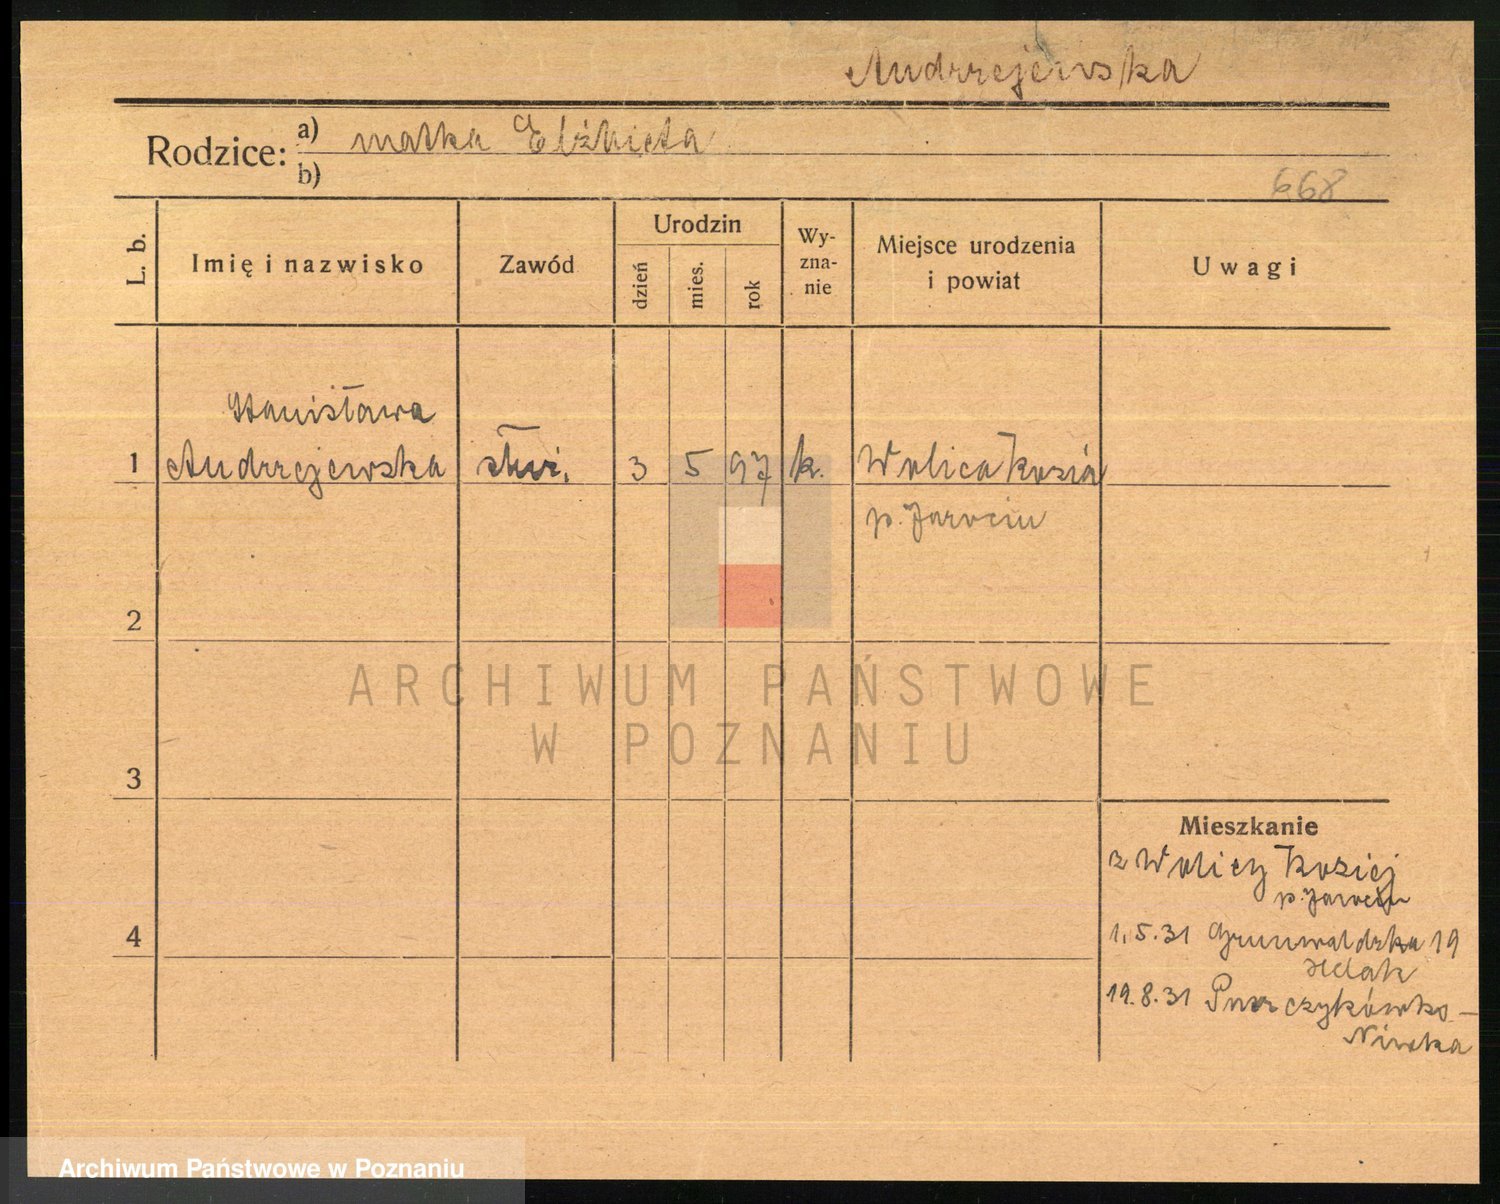 Andrzejewska
Rodzice: a) matka Elżbieta
b)
668
L. b.
Imię i nazwisko
Zawód
Urodzin
dzień
mies.
rok
Wy-
zna-
nie
Miejsce urodzenia
i powiat
Uwagi
Stanisława
1 Andrzejewska służ. 3 5 97 k. Wolica Kozia
p. Jarocin
2
ARCHIWUM PAŃSTWOWE
W POZNANIU
3
Mieszkanie
z Wolicy Koziej
p. Jarocin
4
1.5.31 Grunwaldzka 19
19.8.31 Puszczykówko-
Niwka
Archiwum Państwowe w Poznaniu